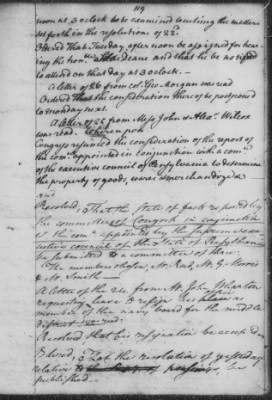 119
noon at 3 o clock to be examined touching the matters
set forth in the resolution of 22d.
Ordered That Tuesday after noon be assigned for hea-
ring the honble Silas Deane and that he be notified
to attend on that day at 3 o'clock.
A letter of 26 from col. Geo Morgan was read
Ordered that the consideration thereof be postponed
to monday next.
A letter of 25 from Messrs John & Alexr. Wilcox
was read. Whereupon
Congress resumed the consideration of the report of
the comee appointed in conjunction with a comee
of the executive council of Pensylvania to determine
the property of goods, wares & merchandize
and
Resolved, That the state of facts reported by
the committee of Congress in conjunction
with the comee appointed by the supreme exe-
cutive council of the State of Pensylvania
be submitted to a committee of three.
The members chosen, Mr. Read, Mr. G. Morris
& Mr. Smith
A letter of the 26 from Mr. John Wharton
requesting leave to resign his place as
member of the navy board for the middle
district was read.
Resolved that his resignation be accepted.
Resolved, That the resolution of yesterday
relative to be
published.